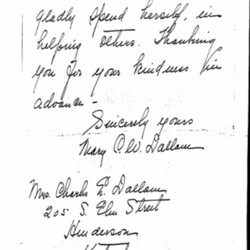 gladly spend herself, in
helping others. Thanking
you for your kindness in
advance -
Sincerely yours
Mary C.W. Dallam
Mrs. Charles E. Dallam
205 S. Elm Street
Henderson